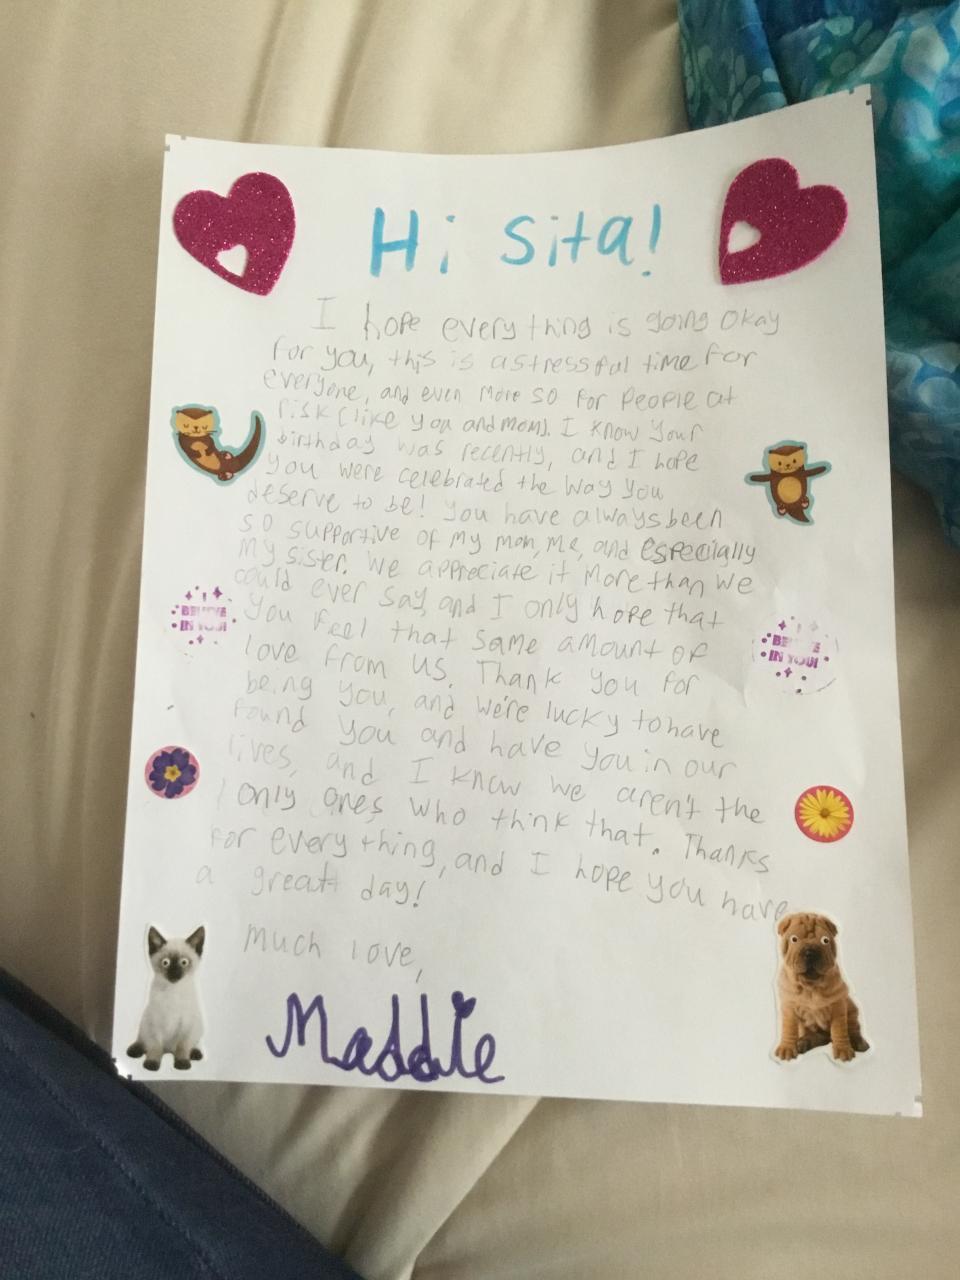 Hi Sita!
I hope everything is going okay
for you, this is a stressful time for
everyone, and even more so for people at
risk (like you and mom). I know your
birthday was recently, and I hope
you were celebrated the way you
deserve to be! You have always been
so supportive of my mom, me, and especially
my sister. We appreciate it more than we
could ever say, and I only hope that
you feel that same amount of
love from us. Thank you for
being you, and we're lucky to have
found you and have you in our
lives, and I know we aren't the
only ones who think that. Thanks
for everything, and I hope you have
a great day!
much love,
Maddie
I
BELIEVE
IN YOU!
I
BELIEVE
IN YOU!